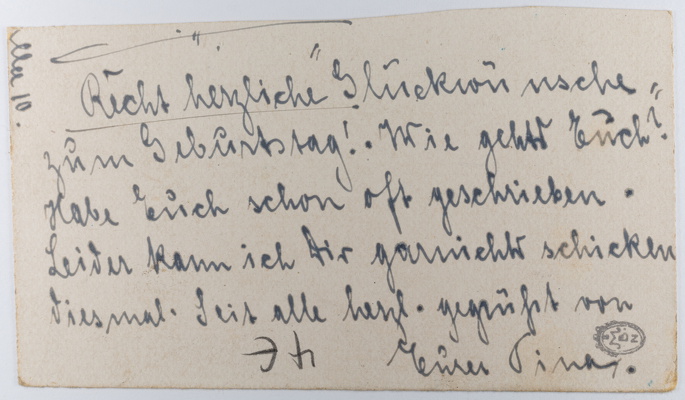 Recht herzliche Glückwünsche
zum Geburtstag! Wie gehts Euch?
Habe Euch schon oft geschrieben.
Leider kann ich Dir garnichts schicken
diesmal. Seit alle herzl. gegrüßt von
Eurer Tina.